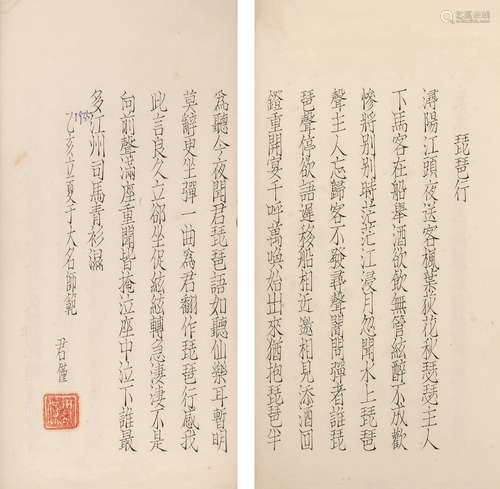 琵琶行
潯陽江頭夜送客楓葉荻花秋瑟瑟主人
下馬客在船舉酒欲飲無管絃醉不成歡
慘將別別時茫茫江浸月忽聞水上琵琶
聲主人忘歸客不發尋聲闇問彈者誰琵
琶聲停欲語遲移船相近邀相見添酒回
鐙重開宴千呼萬喚始出來猶抱琵琶半
為聽今夜聞君琵琶語如聽仙樂耳暫明
莫辭更坐彈一曲為君翻作琵琶行感我
此言良久立卻坐促絃絃轉急淒淒不是
向前聲滿座重聞皆掩泣座中泣下誰最
多江州司馬青衫濕
1935
乙亥立夏于大名師範
君僅